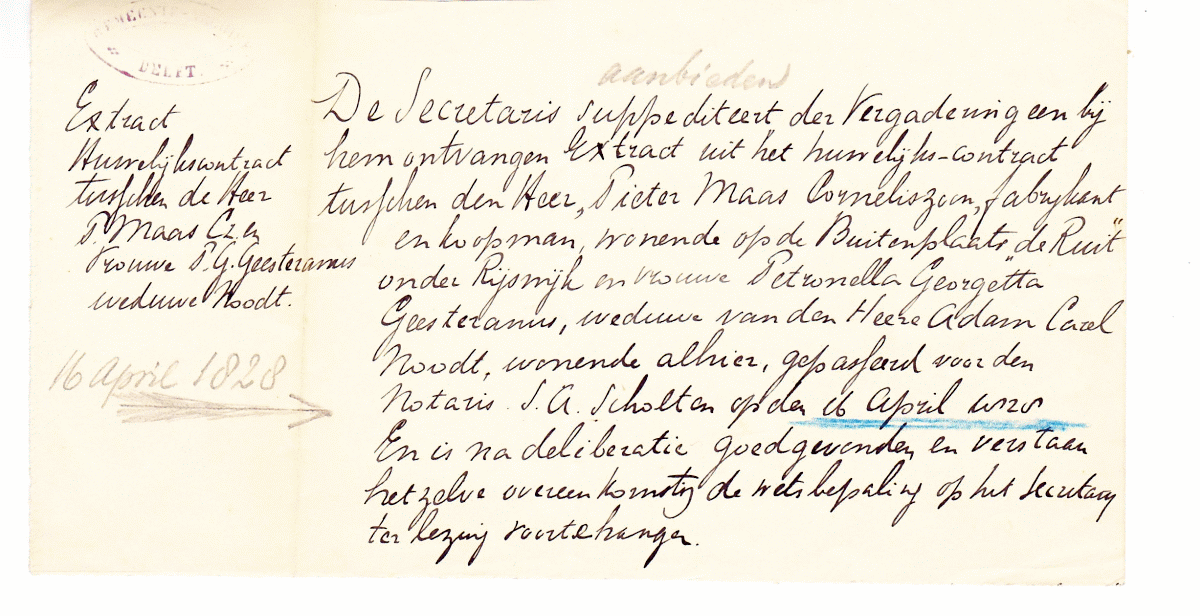 DELFT.
aanbieden
Extract
Huwelijkscontract
tusschen de Heer
P. Maas Cz. en
Vrouwe P.G. Geesteranus
weduwe Noodt.
16 April 1828
De Secretaris suppediteert der Vergadering een bij
hem ontvangen Extract uit het huwelijks-contract
tusschen den Heer, Pieter Maas Corneliszoon, fabrijkant
en koopman, wonende op de Buitenplaats "de Ruit"
onder Rijswijk en vrouwe Petronella Georgetta
Geesteranus, weduwe van den Heere Adam Carel
Noodt, wonende alhier, gepasseerd voor den
Notaris S.A. Scholten op den 16 April 1828
En is na deliberatie goedgevonden en verstaan
hetzelve overeenkomstig de wetsbepaling op het Secretary
ter lezing voortehangen.